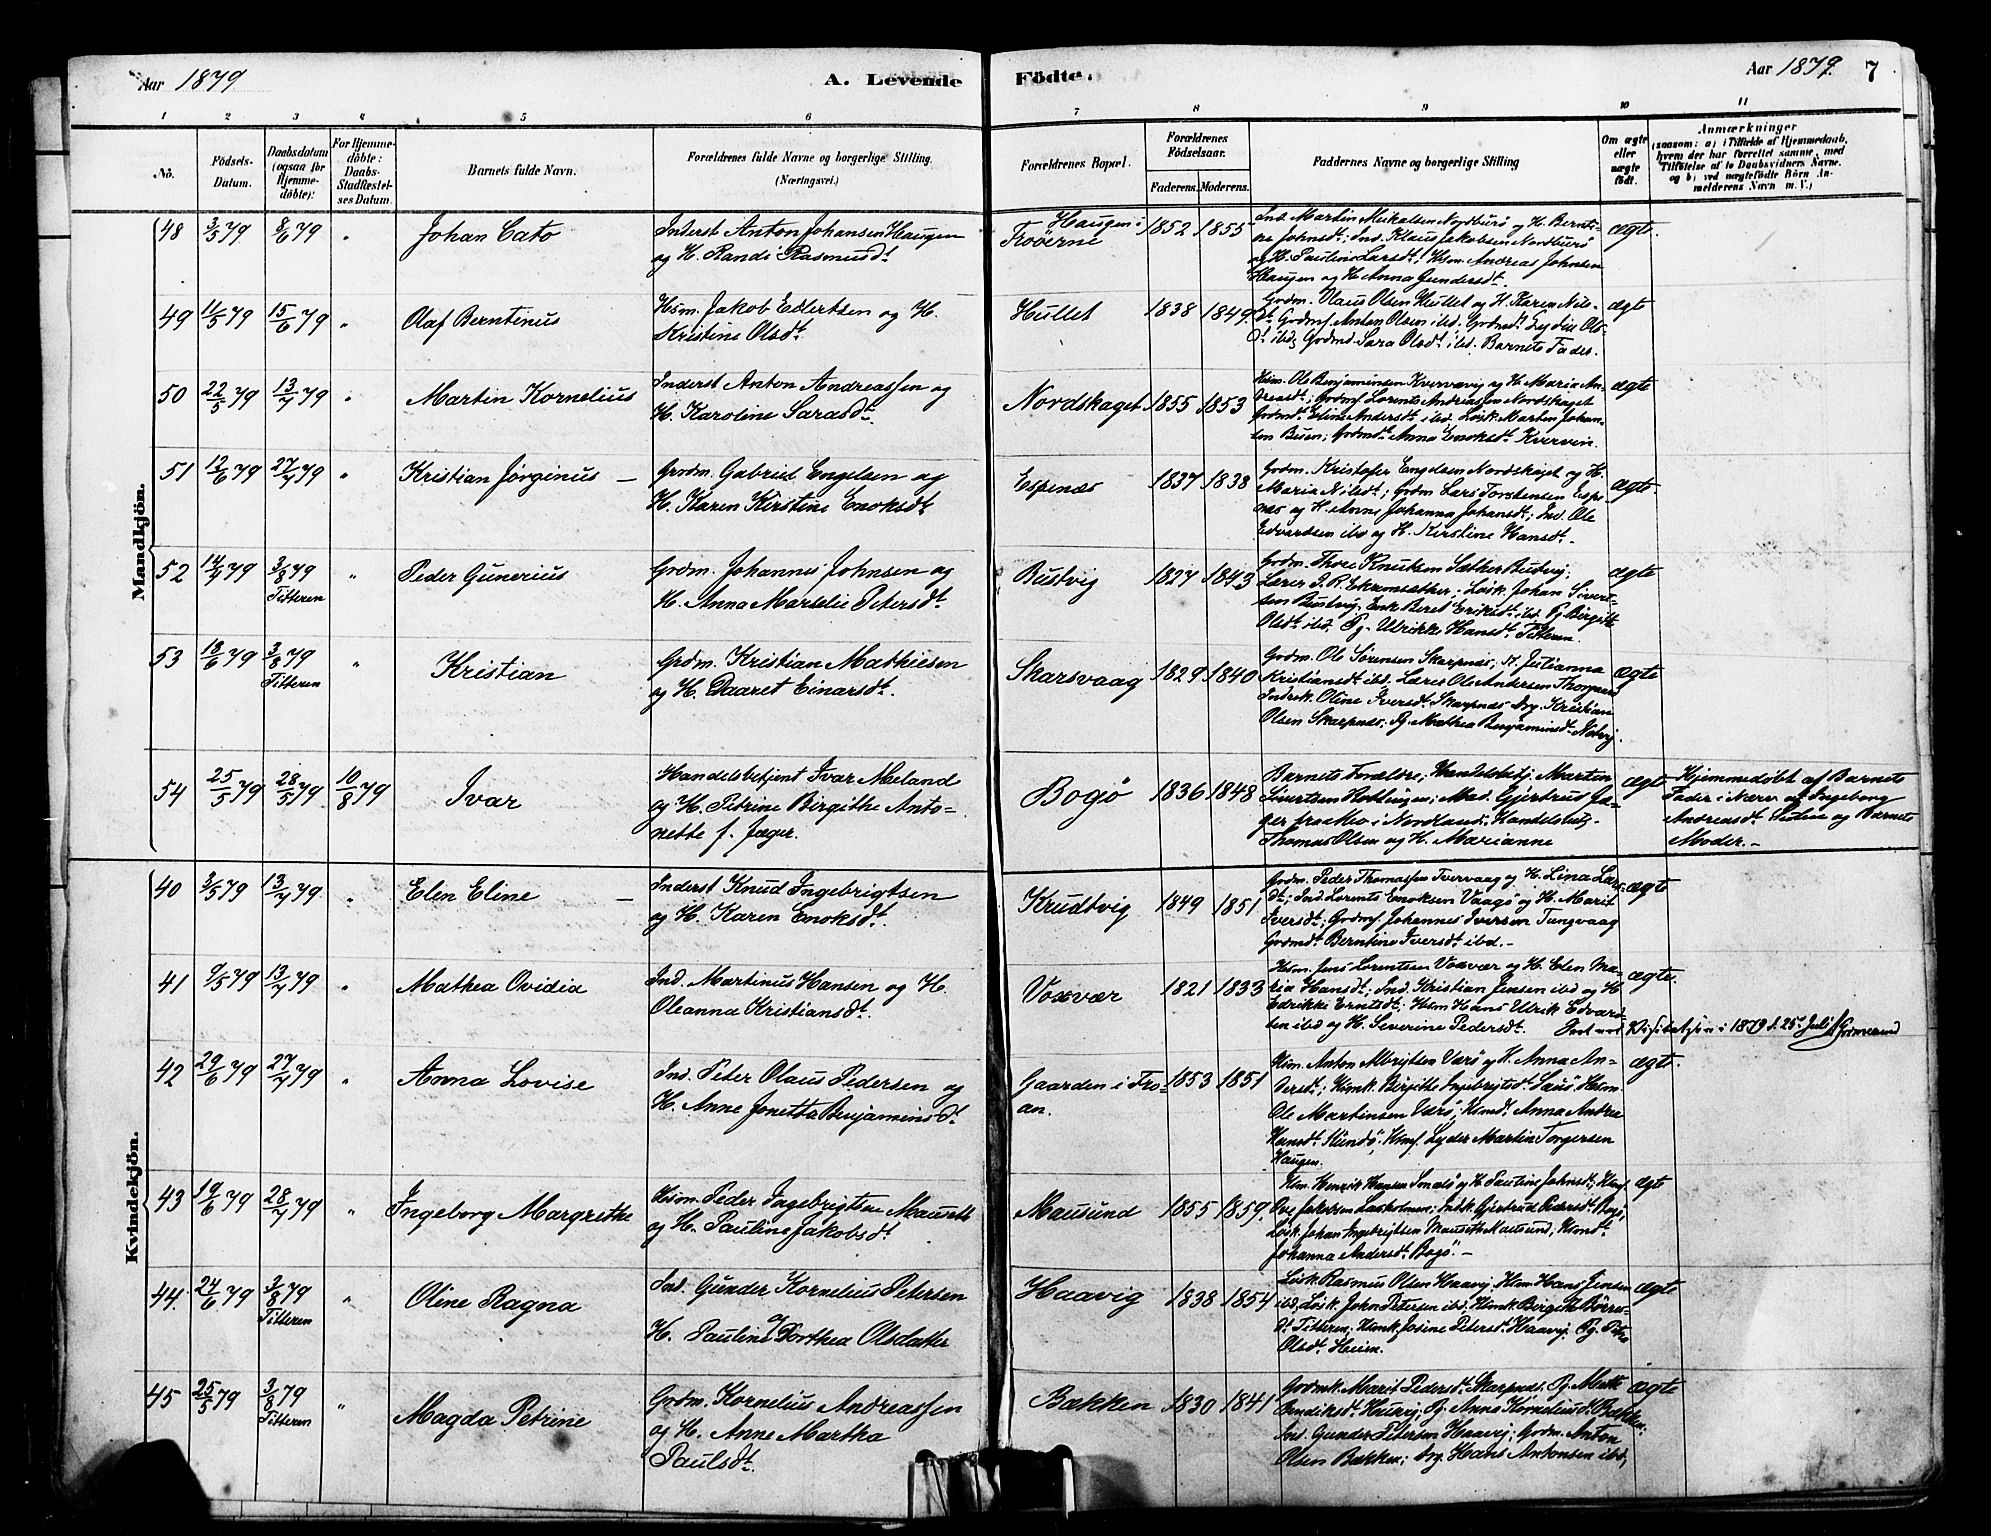 Aar 1879
A. Levende
Födte.
Aar 1879.
7
1 2 3 4 5 6 7 8 9 10 11
No.
Födsels-
Datum.
Daabsdatum
(ogsaa for
Hjemme-
döbte):
For Hjemme-
döbte:
Daabs-
Stadfæstel-
ses Datum.
Barnets fulde Navn.
Forældrenes fulde Navne og borgerlige Stilling.
(Næringsvei.)
Forældrenes Bopæl.
Forældrenes
Födselsaar.
Faderens.
Moderens.
Faddernes Navne og borgerlige Stilling
Om ægte
eller
uægte
födt.
Anmærkninger
(saasom: a) i Tilfælde af Hjemmedaab,
hvem der har forrettet samme, med
Tilföielse af to Daabsvidners Navne.
og b) ved uægtefödte Börn An-
melderens Navn m. V.)
Mandkjön.
48 3/5 79 8/6 79 " Johan Cato
Inderst Anton Johansen Haugen
og H. Randi Rasmusdt
Haugen i
Froöerne
1852 1855
Ind. Martin Mikalsen Nordburö og H. Bernti-
ne Johnsdt; Ind. Klaus Jakobsen Nordburö
og H. Pauline Larsdt; Hsm. Andreas Johnsen
Haugen og H. Anna Gundersdt.
ægte.
49 11/5 79 15/6 79 " Olaf Berntinus
Hsm. Jakob Edlertsen og H.
Kristine Olsdt.
Hullet
1838 1849
Grdm. Olaus Olsen Hullet og H. Karen Nils-
dt. Grdmf. Anton Olsen ibd. Grdmd. Lydia Ols-
dt ibd; Grdmd. Sara Olsdt ibd. Barnets Fader.
ægte
50 22/5 79 13/7 79 " Martin Kornelius
Inderst Anton Andreassen og
H. Karoline Sarasdt.
Nordskaget
1855 1853
Hsm. Ole Benjaminsen Kvervavig og H. Maria An-
dreasdt; Grdmf Lorents Andreassen Nordskaget
Grdmdt. Eline Andersdt ibd. Løsk. Marten Johan-
sen Buen; Grdmdt. Anna Enoksdt Kverven.
ægte
51 12/6 79 27/7 79 " Kristian Jørginus –
Grdm. Gabriel Engelsen og
H. Karen Kirstine Enoksdt
Espenæs
1837 1838
Grdm. Kristofer Engelsen Nordskaget og H.
Maria Nilsdt; Grdm Lars Torstensen Espe-
næs og H. Anne Johanna Johansdt; Ind. Ole
Edvardsen ibd og H. Kirstine Hansdt.
ægte.
52 14/7 79 3/8 79 Titteren " Peder Gunerius
Grdm. Johannes Johnsen og
H. Anna Marselie Petersdt.
Bustvig
1827 1843
Grdm. Thore Knutsen Sæther Bustvig;
Lærer J. R. Ekremsæther, Løsk. Johan Sivert-
sen Bustvig, Enk Beret Eriksdt ibd. Pg. Birgitte
Olsdt ibd. Pg. Ulrikke Hansdt. Titteren.
ægte
53 18/6 79 3/8 79 Titteren " Kristian
Grdm. Kristian Mathiesen
og H. Daaret Einarsdt.
Skarsvaag
1829 1840
Grdm. Ole Sørensen Skarpnes, H. Julianna
Kristiansdt ibd. Lærer Ole Andersen
Indrek. Oline Iversdt. Skarpnæs Ung. Kristian
Olsen Skarpnæs. Pg. Mathea Benjaminsdt.
ægte
54 25/5 79 28/5 79 10/8 79 Ivar
Handelsbetjent Ivar Meland
og H. Petrine Birgithe Anto-
nette f. Jæger.
Bogö
1836 1848
Barnets Forældre; Handelsbetj. Marten
Sivertsen Rottingen; Mad. Gjertrud Jæ-
ger fra Mo i Nordland. Handelsbetj.
Thomas Olsen og H. Marianne
ægte
Hjemmedøbt af Barnets
Fader i Nærv. af Ingeborg
Andreasdt. og Barnets
Moder. –
Kvindekjön.
40 3/5 79 13/7 79 " Elen Eline –
Inderst Knud Ingebrigtsen
og H. Karen Enoksdt.
Krudtvig
1849 1851
Grdm. Peder Thomassen Tvervaag og H. Lina Lars-
dt; Ind. Lorents Enoksen Vaagö og H. Marit
Iversdt; Grdmf. Johannes Iversen Tungvaag
Grdmdt Berntine Iversdt ibd. –
ægte
41 9/5 79 13/7 79 " Mathea Ovidia
Ind. Martinus Hansen og H.
Oleanna Kristiansdt.
Voxvær
1821 1833
Hsm. Jens Lorentsen Voxvær og H. Elen Ma-
ria Hansdt; Ind. Kristian Jensen ibd og H
Edrikke Erntsdt; Hsm Hans Ulrik Edvard-
sen ibd og H. Severine Pedersdt.
ægte.
ved Visitatsen i 1879 d. 25. Juli
42 29/6 79 27/7 79 " Anna Lovise
Ind. Peter Olaus Pedersen og
H. Anne Jonetta Benjaminsdt
Gaarden i Fro-
an.
1853 1851
Hsm. Anton Albrigtsen Værö og H. Anna An-
dersdt; Hsmk. Birgithe Ingebrigtsdt Sauö Hsm.
Ole Martinsen Værö; Hsmdt. Anna Andrea
Hansdt. Hsmf. Lyder Martin Torgersen
Haugen.
ægte.
43 19/6 79 28/7 79 " Ingeborg Margrethe
Hsm. Peder Ingebrigtsen Mauseth
og H. Pauline Jakobsdt.
Mausund
1855 1859.
Hsm. Henrik Hansen og H. Pauline Johnsdt, Hsmf
Ove Jakobsen Indk. Gjertrud Pedersdt Bogö;
Løsk. Johan Ingebrigtsen Mauseth Mausund, Hsmdt.
Johanna Andersdt. Bogö. –
ægte
44. 24/6 79 3/8 79 Titteren " Oline Ragna
Ind. Gunder Kornelius Petersen
og
H. Pauline Dorthea Olsdatter
Haavig
1838 1854
Løsk. Rasmus Olsen Haavig, Hsm. Hans Jensen
ibd, Løsk. John Petersen ibd. Hsmk. Birgitte
Titteren, Hsmk. Josine Petersdt. Haavig. Pg.
Olsdt.
ægte
45 25/5 79 3/8 79 Titteren " Magda Petrine
Grdm. Kornelius Andreassen
og H. Anne Martha
Paulsdt.
Bækken
1830 1841
Grdmk. Marit Pedersdt. Skarpnæs. Pg. Mette
Bendiksdt. Pg. Anna Kornelius dt. Bækken;
Ind. Gunder Petersen Haavig; Grdm. Anton
Olsen Bækken; Ung. Hans Antonsen ibd,
ægte